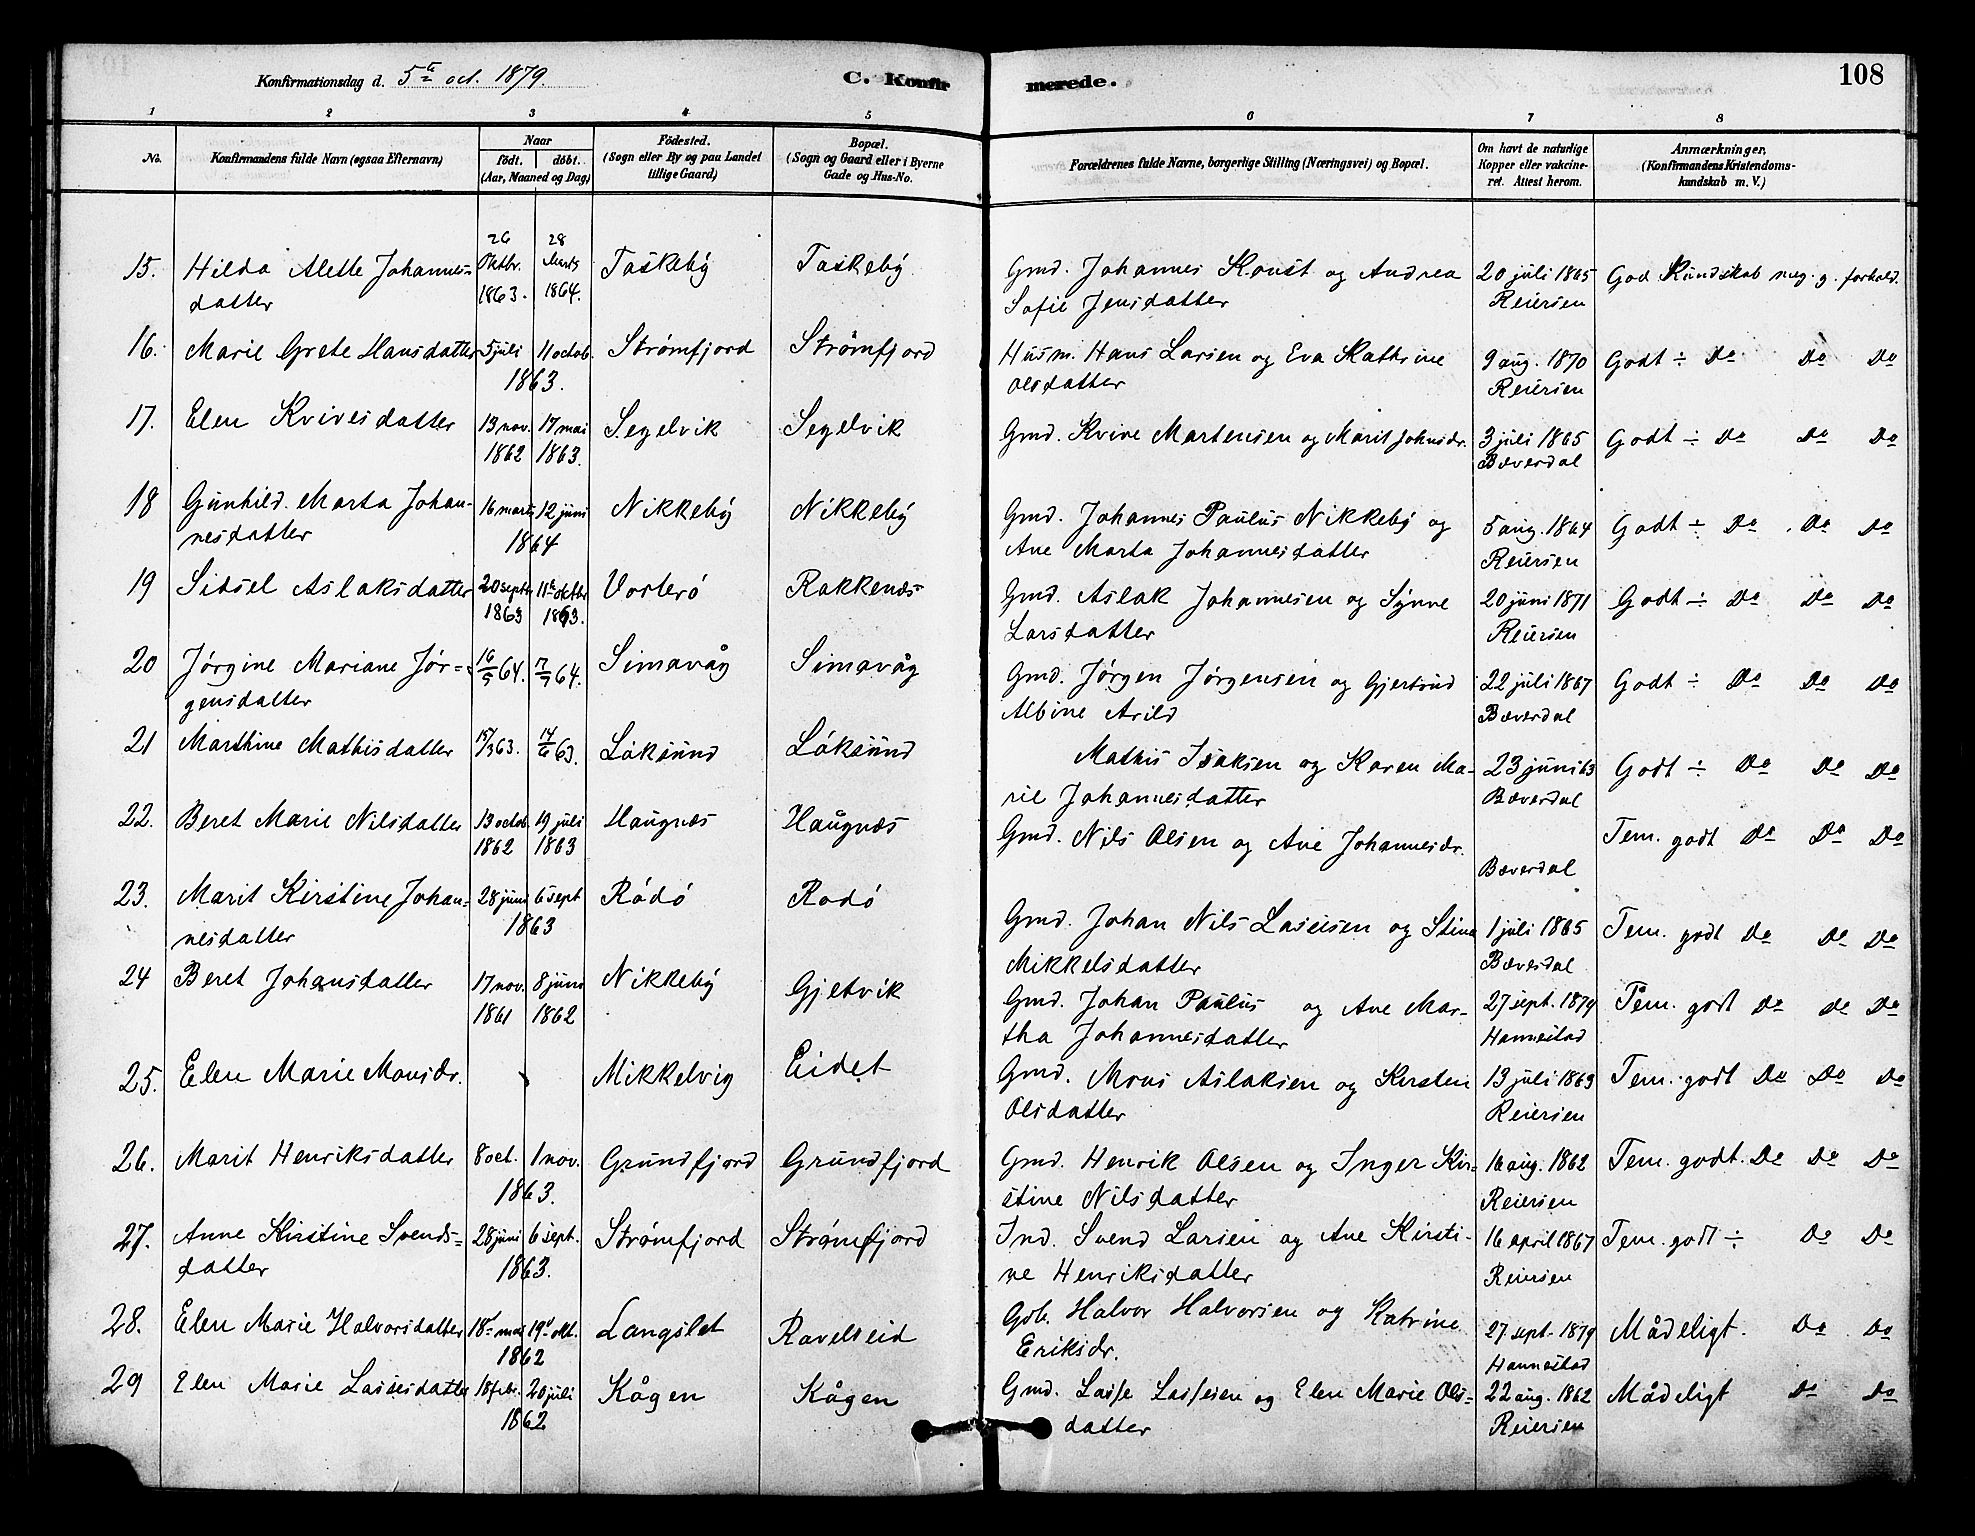 Konfirmationsdag d. 5te oct. 1879.
C. Konfirmerede.
108
1 2 3 4 5 6 7 8
No.
Konfirmandens fulde Navn (ogsaa Efternavn)
Naar
födt. döbt.
(Aar, Maaned og Dag)
Födested.
(Sogn eller By og paa Landet
tillige Gaard)
Bopæl.
(Sogn og Gaard eller i Byerne
Gade og Hus-No.
Forældrenes fulde Navne, borgerlige Stilling (Næringsvei) og Bopæl.
Om havt de naturlige
Kopper eller vakcine-
ret. Attest herom.
Anmærkninger,
(Konfirmandens Kristendoms-
kundskab m. V.)
15. Hilda Alette Johannes- 26 Oktbr. 1863. 28 Marts 1864. Taskeby Taskeby Gmd. Johannes Konst og Andrea 20 juli 1865 God Kundskab meg. g. forhold.
datter Sofie Jensdatter Reiersen
16. Marie Grete Hansdatter 5 juli 11 octob. Strømfjord Strømfjord Husm. Hans Larsen og Eva Kathrine 9 aug. 1870 Godt ÷ Do Do Do
1863. Olsdatter Reiersen
17. Elen Kvivesdatter 13 nov. 17 mai Segelvik Segelvik Gmd. Kvive Martensen og Marit Johnsdr. 3 juli 1865 Godt ÷ Do Do Do
1862 1863. Bæverdal
18 Gunhild Marta Johan- 16 marts 12 juni Nikkeby Nikkeby Gmd. Johannes Paulus Nikkeby og 5 aug. 1864 Godt ÷ Do Do Do
nesdatter 1864 Ane Marta Johannesdatter Reiersen
19 Sidsel Aslaksdatter 20 septr 11te oktbr Vorterø Rakkenæs Gmd. Aslak Johannesen og Synne 20 juni 1871 Godt ÷ Do Do Do
1863 1863. Larsdatter Reiersen
20 Jørgine Mariane Jør- 16/5 64. 17/7 64. Simavåg Simavåg Gmd. Jørgen Jørgensen og Gjertrud 22 juli 1867 Godt ÷ Do Do Do
gensdatter Albine Arild Bæverdal
21 Marthine Mathisdatter 15/3 63. 14/6 63. Løksund Løksund Mathis Isaksen og Karen Ma- 23 juni 63 Godt ÷ Do Do Do
rie Johannesdatter Bæverdal
22. Beret Marie Nilsdatter 13 octob. 19 juli Haugnæs Haugnæs Gmd. Nils Olsen og Ane Johannesdr. Tem. godt Do Do Do
1862 1863 Bæverdal
23. Marit Kirstine Johan- 28 juni 6 sept Rödö Rödö Gmd. Johan Nils Lassesen og Stine 1 juli 1865 Tem. godt Do Do Do
nesdatter 1863 Mikkelsdatter Bæverdal
24 Beret Johansdatter 17 nov. 8 juni Nikkeby Gjetvik Gmd. Johan Paulus og Ane Mar- 27 sept. 1879 Tem. godt Do Do Do
1861 1862 tha Johannesdatter Hannestad
25. Elen Marie Monsdr. Mikkelvig Eidet Gmd. Mons Aslaksen og Kirsten 13 juli 1863 Tem. godt Do Do Do
Olsdatter Reiersen
26. Marit Henriksdatter 8 oct. 1 nov. Grundfjord Grundfjord Gmd. Henrik Olsen og Inger Kir- 16 aug. 1862 Tem. godt. Do Do Do
1863. stine Nilsdatter Reiersen
27. Anne Kirstine Svends- 28 juni 6 sept. Strømfjord Strømfjord Ind. Svend Larsen og Ane Kirsti- 16 april 1867 Tem. godt ÷ Do Do
datter 1863. ne Henriksdatter Reiersen
28. Elen Marie Halvorsdatter 18de mai 19de okt. Langslet Ravelseid Gdb. Halvor Halvorsen og Katrine 27 sept. 1879 Mådeligt. Do Do
1862 Eriksdr. Hannestad
29 Elen Marie Lassesdatter 18 febr. 20 juli Kågen Kågen Gmd. Lasse Lassesen og Elen Marie Ols- 22 aug. 1862 Mådeligt Do Do
1862 datter Reiersen